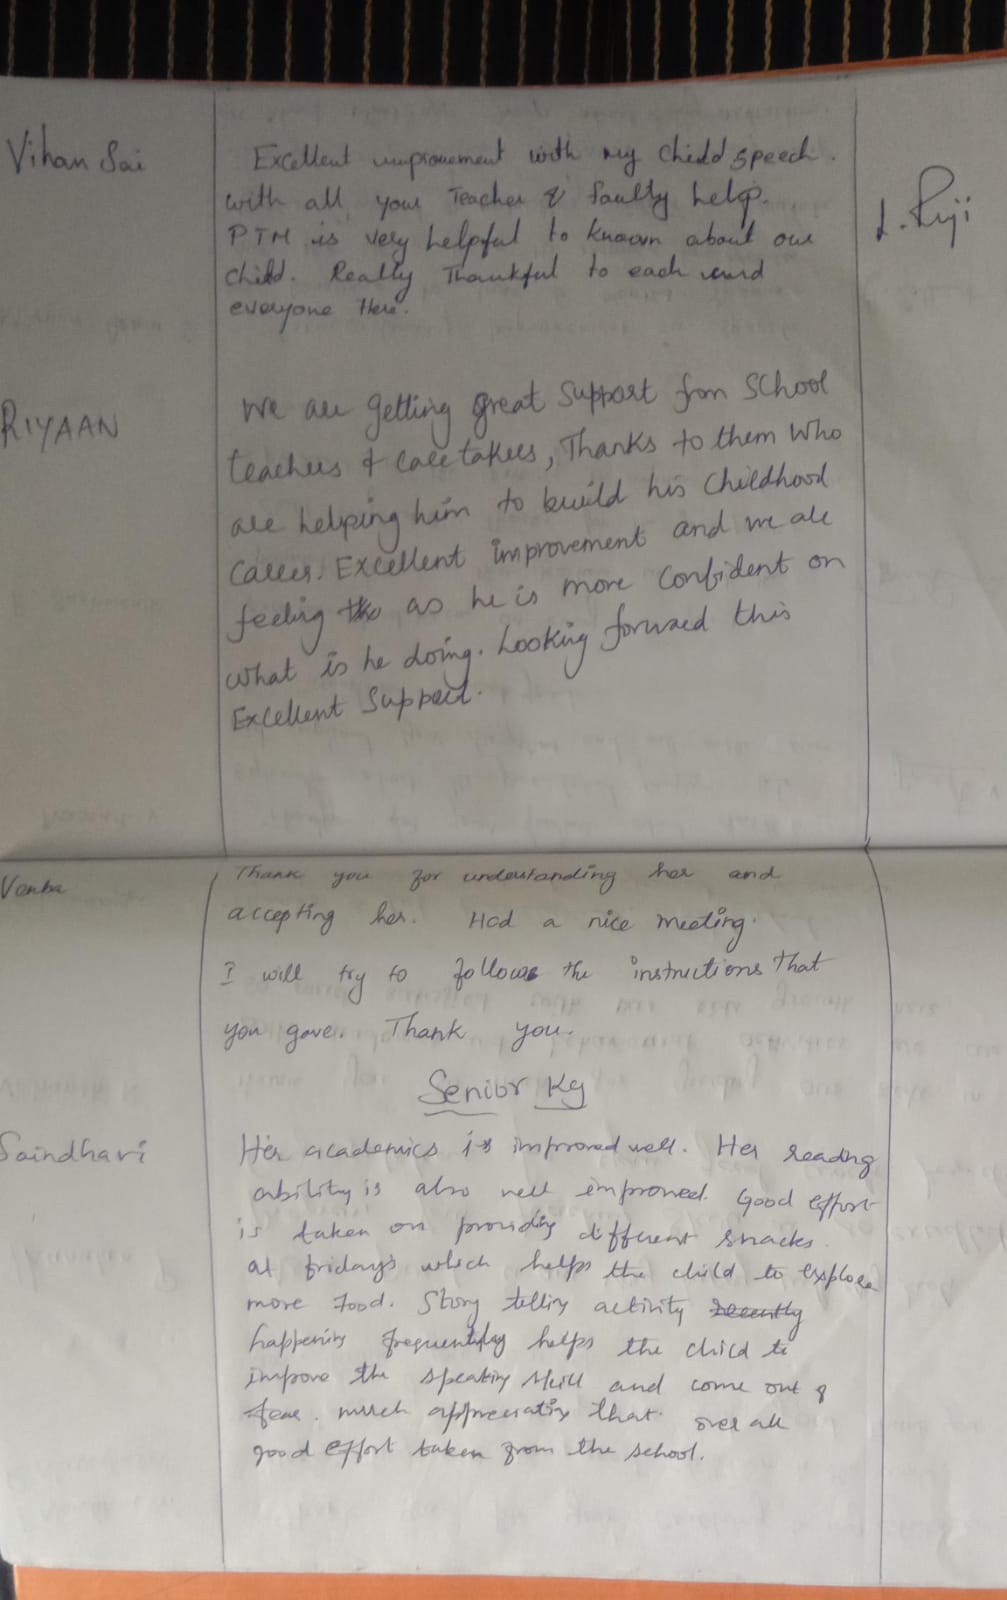 Vihan Sai
Excellent improvement with my child speech.
with all your Teacher & faulty help.
PTM is very helpful to known about our
child. Really Thankful to each and
everyone Here.
RIYAAN
We are getting great support from School
teachers & care takers, Thanks to them who
are helping him to build his childhood
career. Excellent improvement and we are
feeling as he is more confident on
what is he doing. Looking forward this
Excellent Support.
Venba
Thank you for understanding her and
accepting her. Had a nice meeting.
I will try to follow the instructions that
you gave. Thank you.
Senior Kg
Saindhavi
Her academics is improved well. Her reading
ability is also well improved. Good effort
is taken on providing different snacks
at fridays which helps the child to explore
more food. Story telling activity recently
happening frequently helps the child to
improve the speaking skill and come out of
fear. much appreciating that. over all
good effort taken from the school.